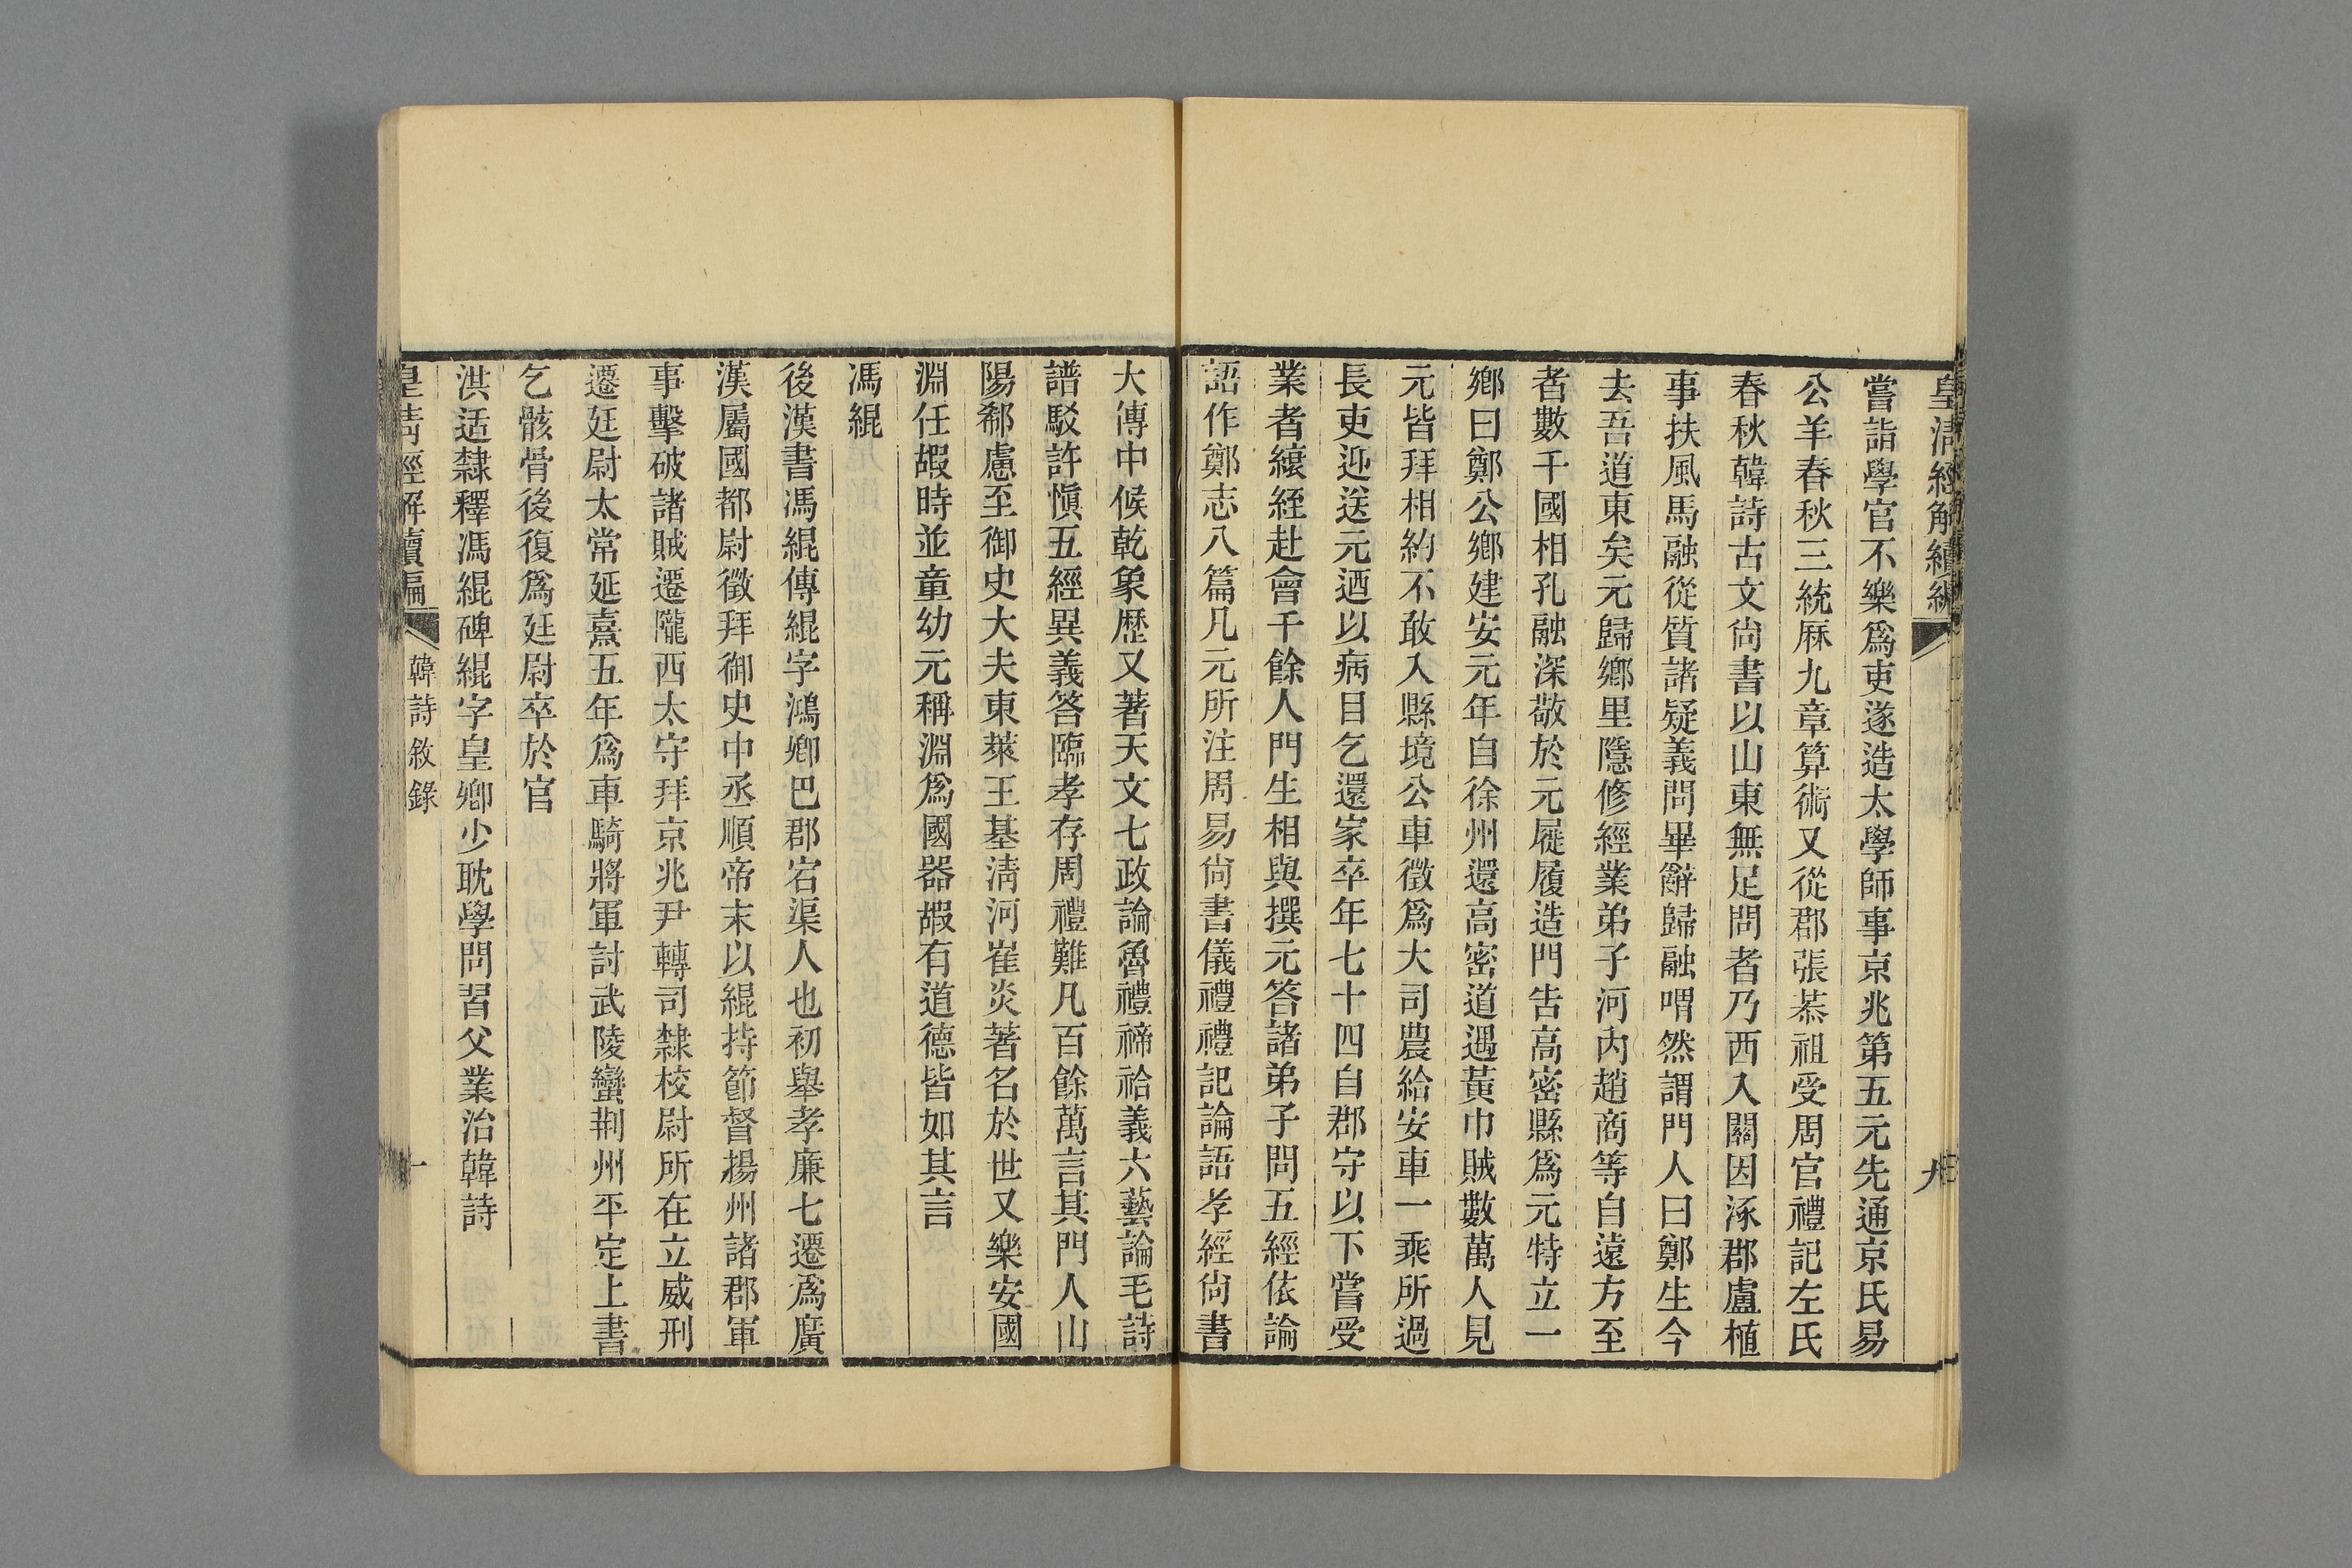 皇清經解續編
九
嘗詣學官不樂爲吏遂造太學師事京兆第五元先通京氏易
公羊春秋三統厤九章算術又從郡張恭祖受周官禮記左氏
春秋韓詩古文尙書以山東無足問者乃西入關因涿郡盧植
事扶風馬融從質諸疑義問畢辭歸融喟然謂門人曰鄭生今
去吾道東矣元歸鄉里隱修經業弟子河內趙商等自遠方至
者數千國相孔融深敬於元屣履造門告高密縣爲元特立一
鄉曰鄭公鄉建安元年自徐州還高密道遇黃巾賊數萬人見
元皆拜相約不敢入縣境公車徵爲大司農給安車一乘所過
長吏迎送元迺以病自乞還家卒年七十四自郡守以下嘗受
業者縗絰赴會千餘人門生相與撰元答諸弟子問五經依論
語作鄭志八篇凡元所注周易尙書儀禮禮記論語孝經尙書
大傳中候乾象歷又著天文七政論魯禮禘祫義六藝論毛詩
譜駁許愼五經異義答臨孝存周禮難凡百餘萬言其門人山
陽郗慮至御史大夫東萊王基清河崔炎著名於世又樂安國
淵任嘏時並童幼元稱淵爲國器嘏有道德皆如其言
馮緄
後漢書馮緄傳緄字鴻卿巴郡宕渠人也初舉孝廉七遷爲廣
漢屬國都尉徵拜御史中丞順帝末以緄持節督揚州諸郡軍
事擊破諸賊遷隴西太守拜京兆尹轉司隸校尉所在立威刑
遷廷尉太常延熹五年爲車騎將軍討武陵蠻荆州平定上書
乞骸骨後復爲廷尉卒於官
洪适隸釋馮緄碑緄字皇卿少耽學問習父業治韓詩
皇清經解續編
韓詩敘錄